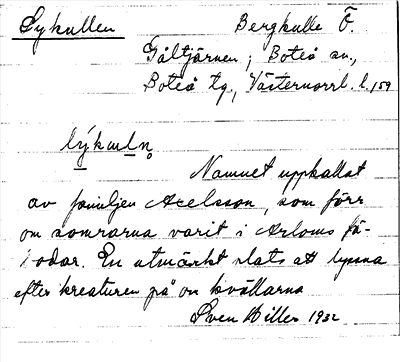 Lykullen
Bergkulle Ö.
Gåltjärnen, Boteå sn.,
Boteå tg., Västernorrl. l. 159
lýkuln
Namnet uppkallat
av familjen Axelsson, som förr
om somrarna varit i Arloms fä-
bodar. En utmärkt plats att lyssna
efter kreaturen på om kvällarna
Sven Hillee 1932